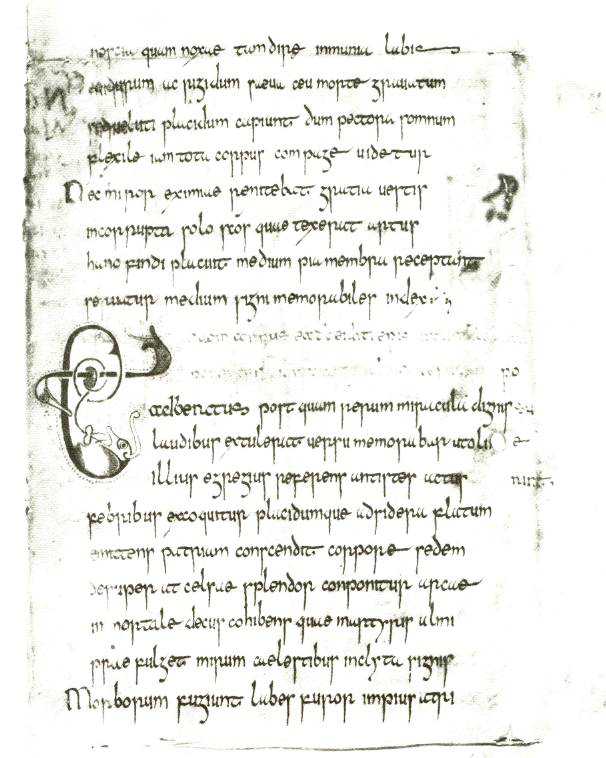 quam noxae inmunia
ac rigidum saeua ceu morte grauatum
placidum capiunt dum pectora somnum
flexile iam tota corpus compage uidetur
Nec miror eximiae renitebat gratia uestis
incorrupta solo scos quae texerat artus
hanc findi placuit medium pia membra receptant
seruatur medium signi memorabiles index
Eadberctus post quam rerum miracula dignis
laudibus extulerat uersu memorabat ut olli
Illius egregius referens antistes actus
febribus excoquitur placidumque adsidera flatum
emittens patriam conscendit corpore sedem
desuper ut celsae splendor conponitur arcae
in mortale decus cohibens quae martyris almi
prae fulget mirum caelestibus inclyta signis
Morborum fugiunt labes furor impius atri